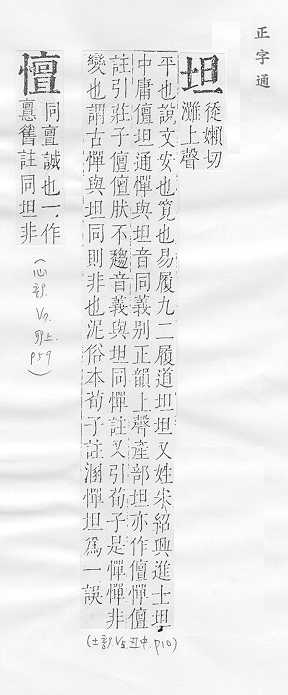 正字通
坦
從嬾切
灘上聲
平也說文安也寬也易履九二履道坦坦又姓宋紹興進士坦
中庸儃坦通憚與坦音同義別正韻上聲產部坦亦作儃憚儃
註引莊子儃儃肰不趨音義與坦同憚註又引荀子是憚憚非
變也謂古憚與坦同則非也泥俗本荀子註溷憚坦爲一誤
(土部 V5.丑中.p10)
憻
同亶誠也一作
舊註同坦非
(心部. 卯上. p59)